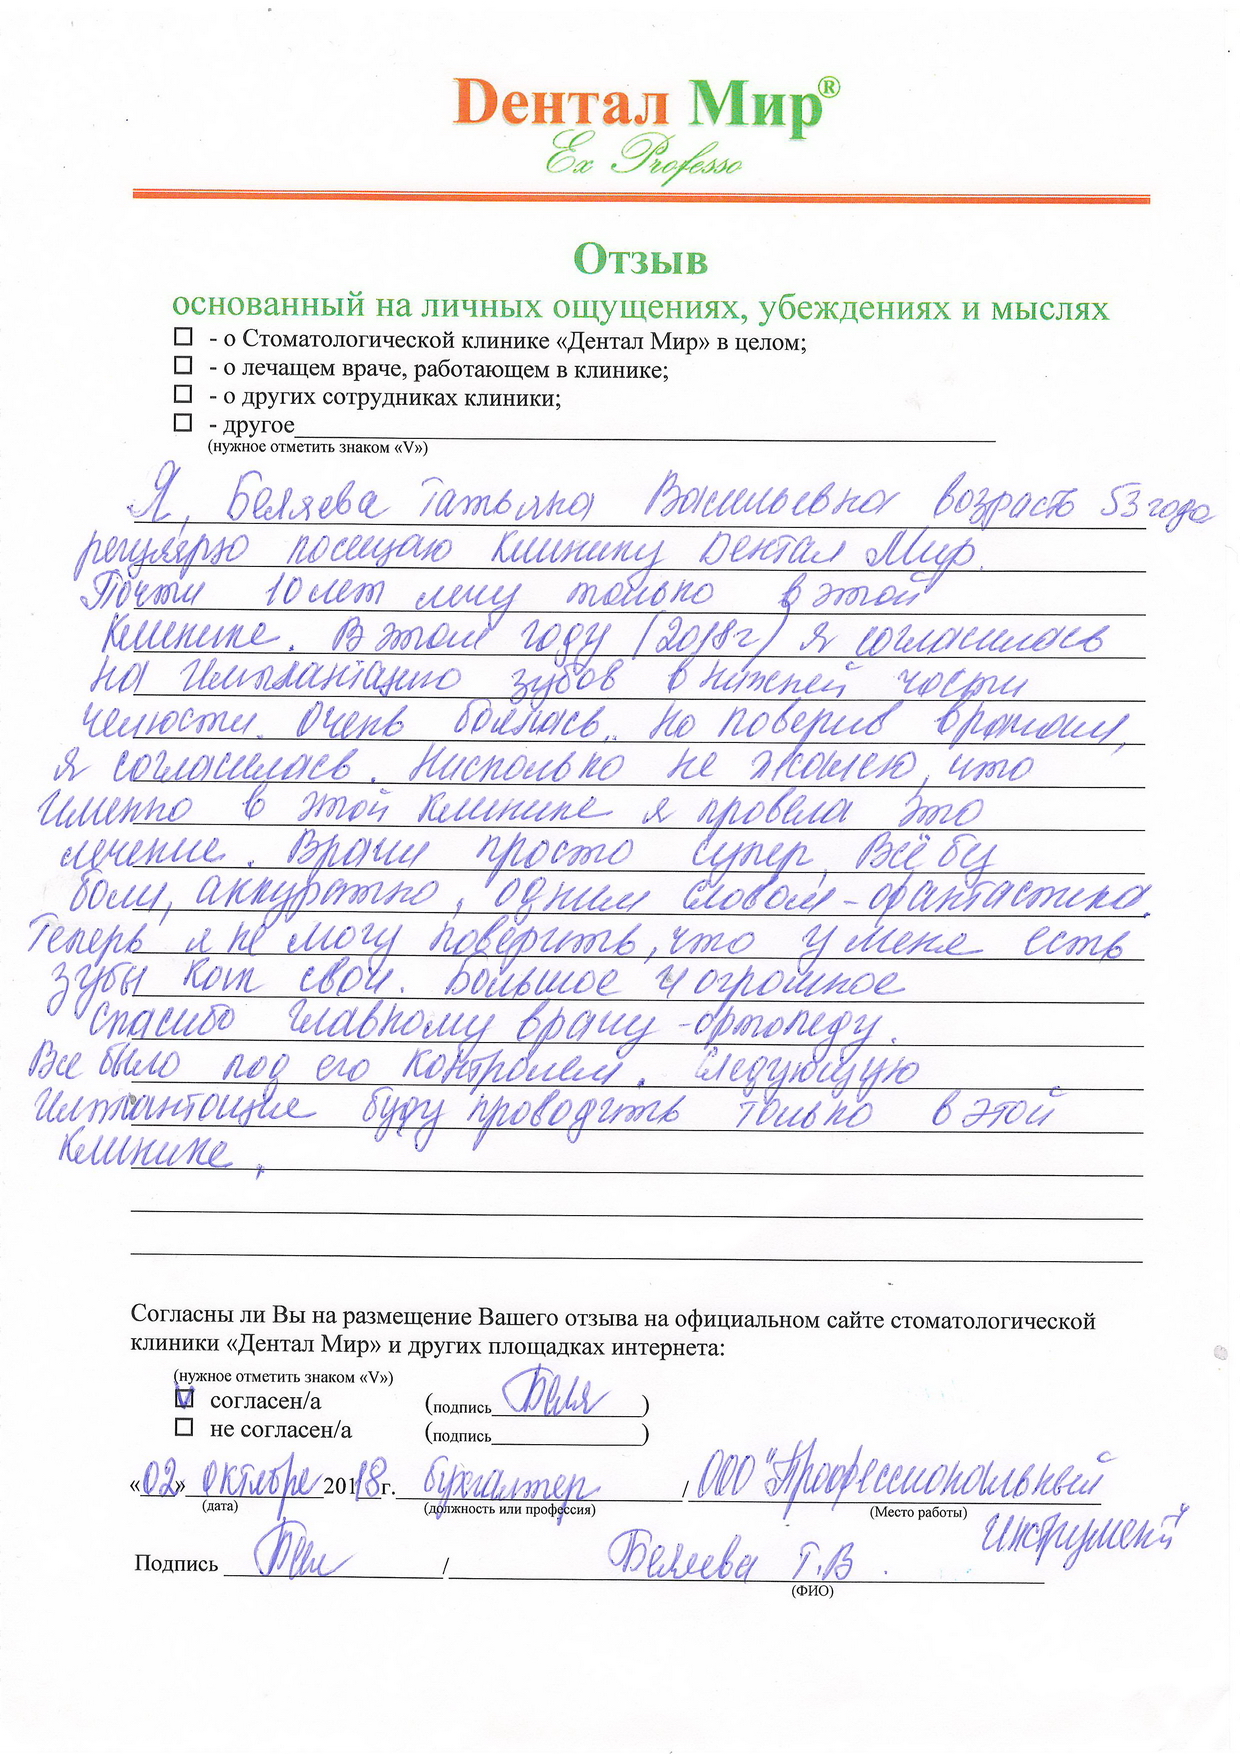 Dентал Мир®
Ex Professo
Отзыв
основанный на личных ощущениях, убеждениях и мыслях
- о Стоматологической клинике «Дентал Мир» в целом;
- о лечащем враче, работающем в клинике;
- о других сотрудниках клиники;
- другое
(нужное отметить знаком «V»)
Я, Беляева Татьяна Васильевна возраст 53 года
регулярно посещаю клинику Dентал Мир.
Почти 10 лет лечу только в этой
клинике. В этом году (2018г) я согласилась
на имплантацию зубов в нижней части
челюсти. Очень боялась.. Но поверив врачам,
я согласилась. Нисколько не жалею, что
именно в этой клинике я провела это
лечение. Врачи просто супер, Всё бу
боли, аккуратно, одним словом - фантастика.
Теперь я не могу поверить, что у меня есть
зубы как свои. Большое и огромное
спасибо главному врачу - ортопеду.
Все было под его контролем. Следующую
буду проводить только в этой
клинике.
Согласны ли Вы на размещение Вашего отзыва на официальном сайте стоматологической
клиники «Дентал Мир» и других площадках интернета:
(нужное отметить знаком «V»)
V согласен/а (подпись Беля)
не согласен/а (подпись)
«02» октября 2018г. бухгалтер / ООО "Профессиональный
(дата) (должность или профессия) (Место работы)
Инструмент"
Подпись / Беляева Т.В.
(ФИО)